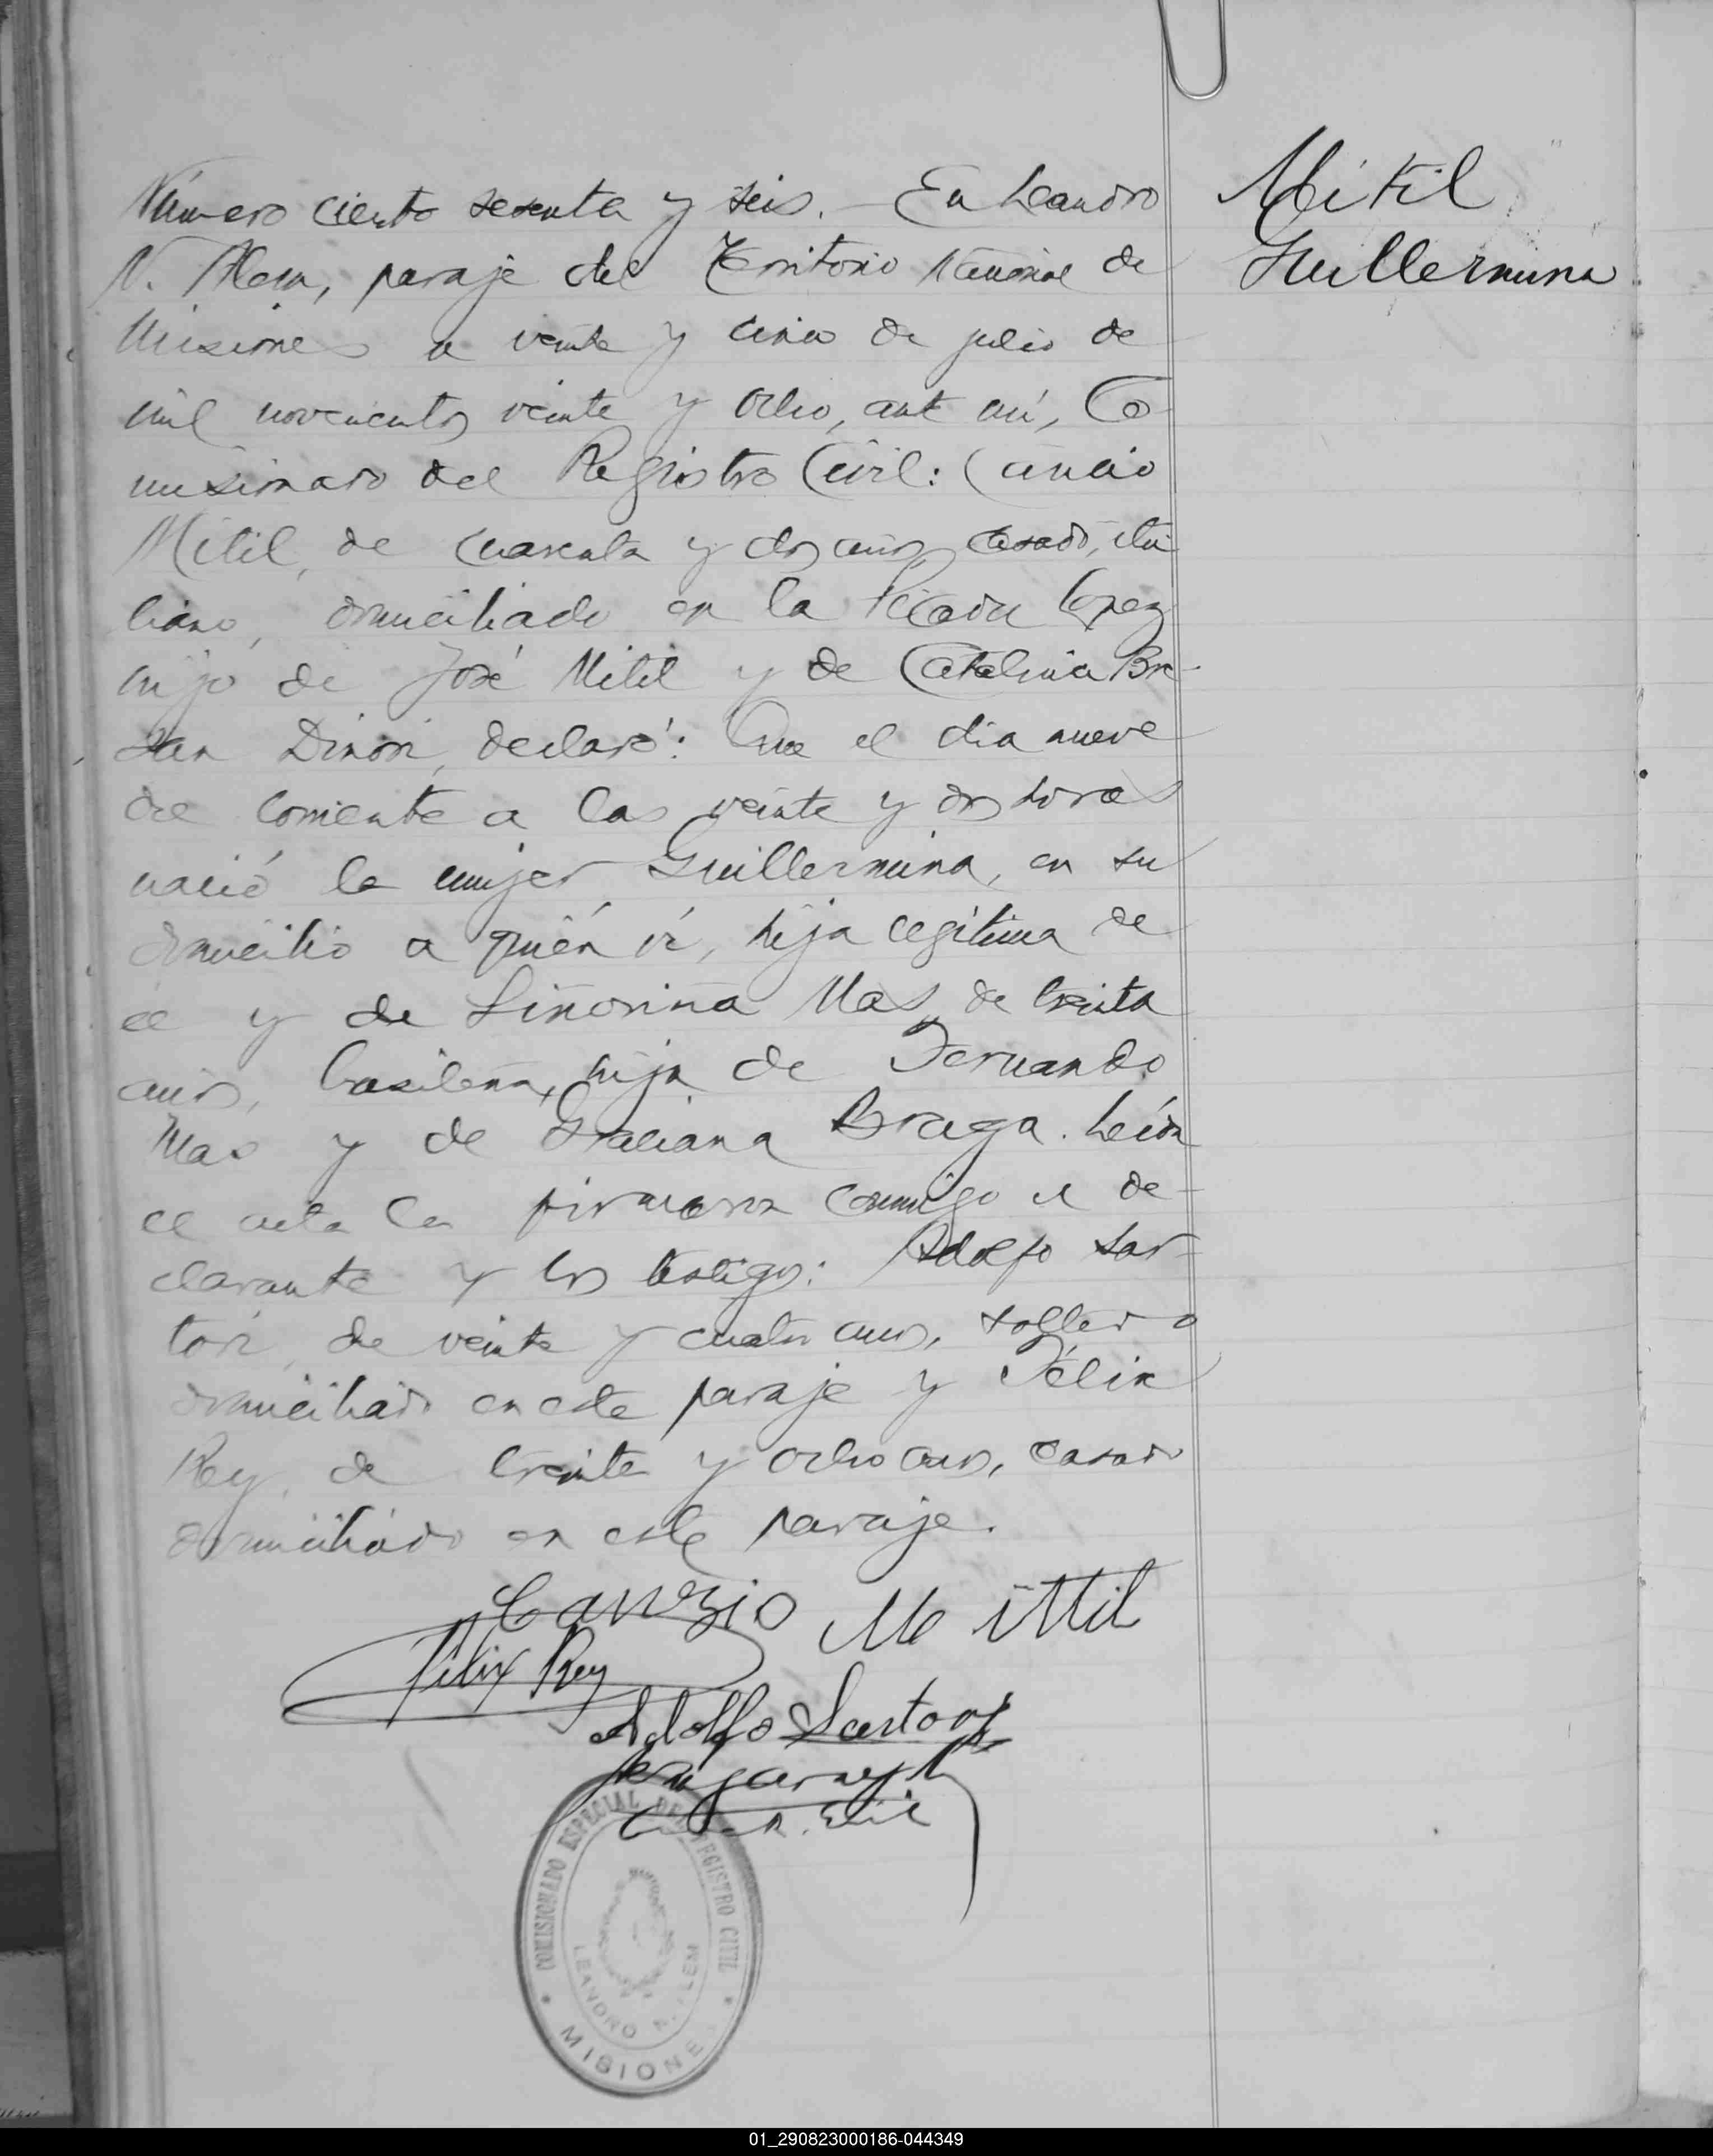 Número ciento sesenta y seis. — En Leandro
N. Alem, paraje del Territorio Nacional de
Misiones a veinte y cinco de julio de
mil novecientos veinte y ocho, ante mí, Co-
misionado del Registro Civil: Cancio
Mitil, de cuarenta y dos años, casado, ita
liano, domiciliado en la Picada Lopez
hijo de José Mitil y de Catalina
declaró: Que el dia nueve
del corriente a las veinte y dos horas
nació la mujer Guillermina, en su
domicilio a quién ví, hija legítima de
él y de Siñorina Mas, de treinta
años, brasileña, hija de Fernando
Mas y de Graciana Braga. Leída
el acta la firmaron conmigo el de-
clarante y los testigos: Adolfo Sar-
tori, de veinte y cuatro años, soltero
domiciliado en este paraje y Félix
Rey, de treinta y ocho años, casado
domiciliado en este paraje.
Mitil
Guillermina
Canzio Mittil
Félix Rey
Adolfo Sartori
COMISIONADO ESPECIAL DEL REGISTRO CIVIL
LEANDRO N. ALEM
MISIONES
01_290823000186-044349